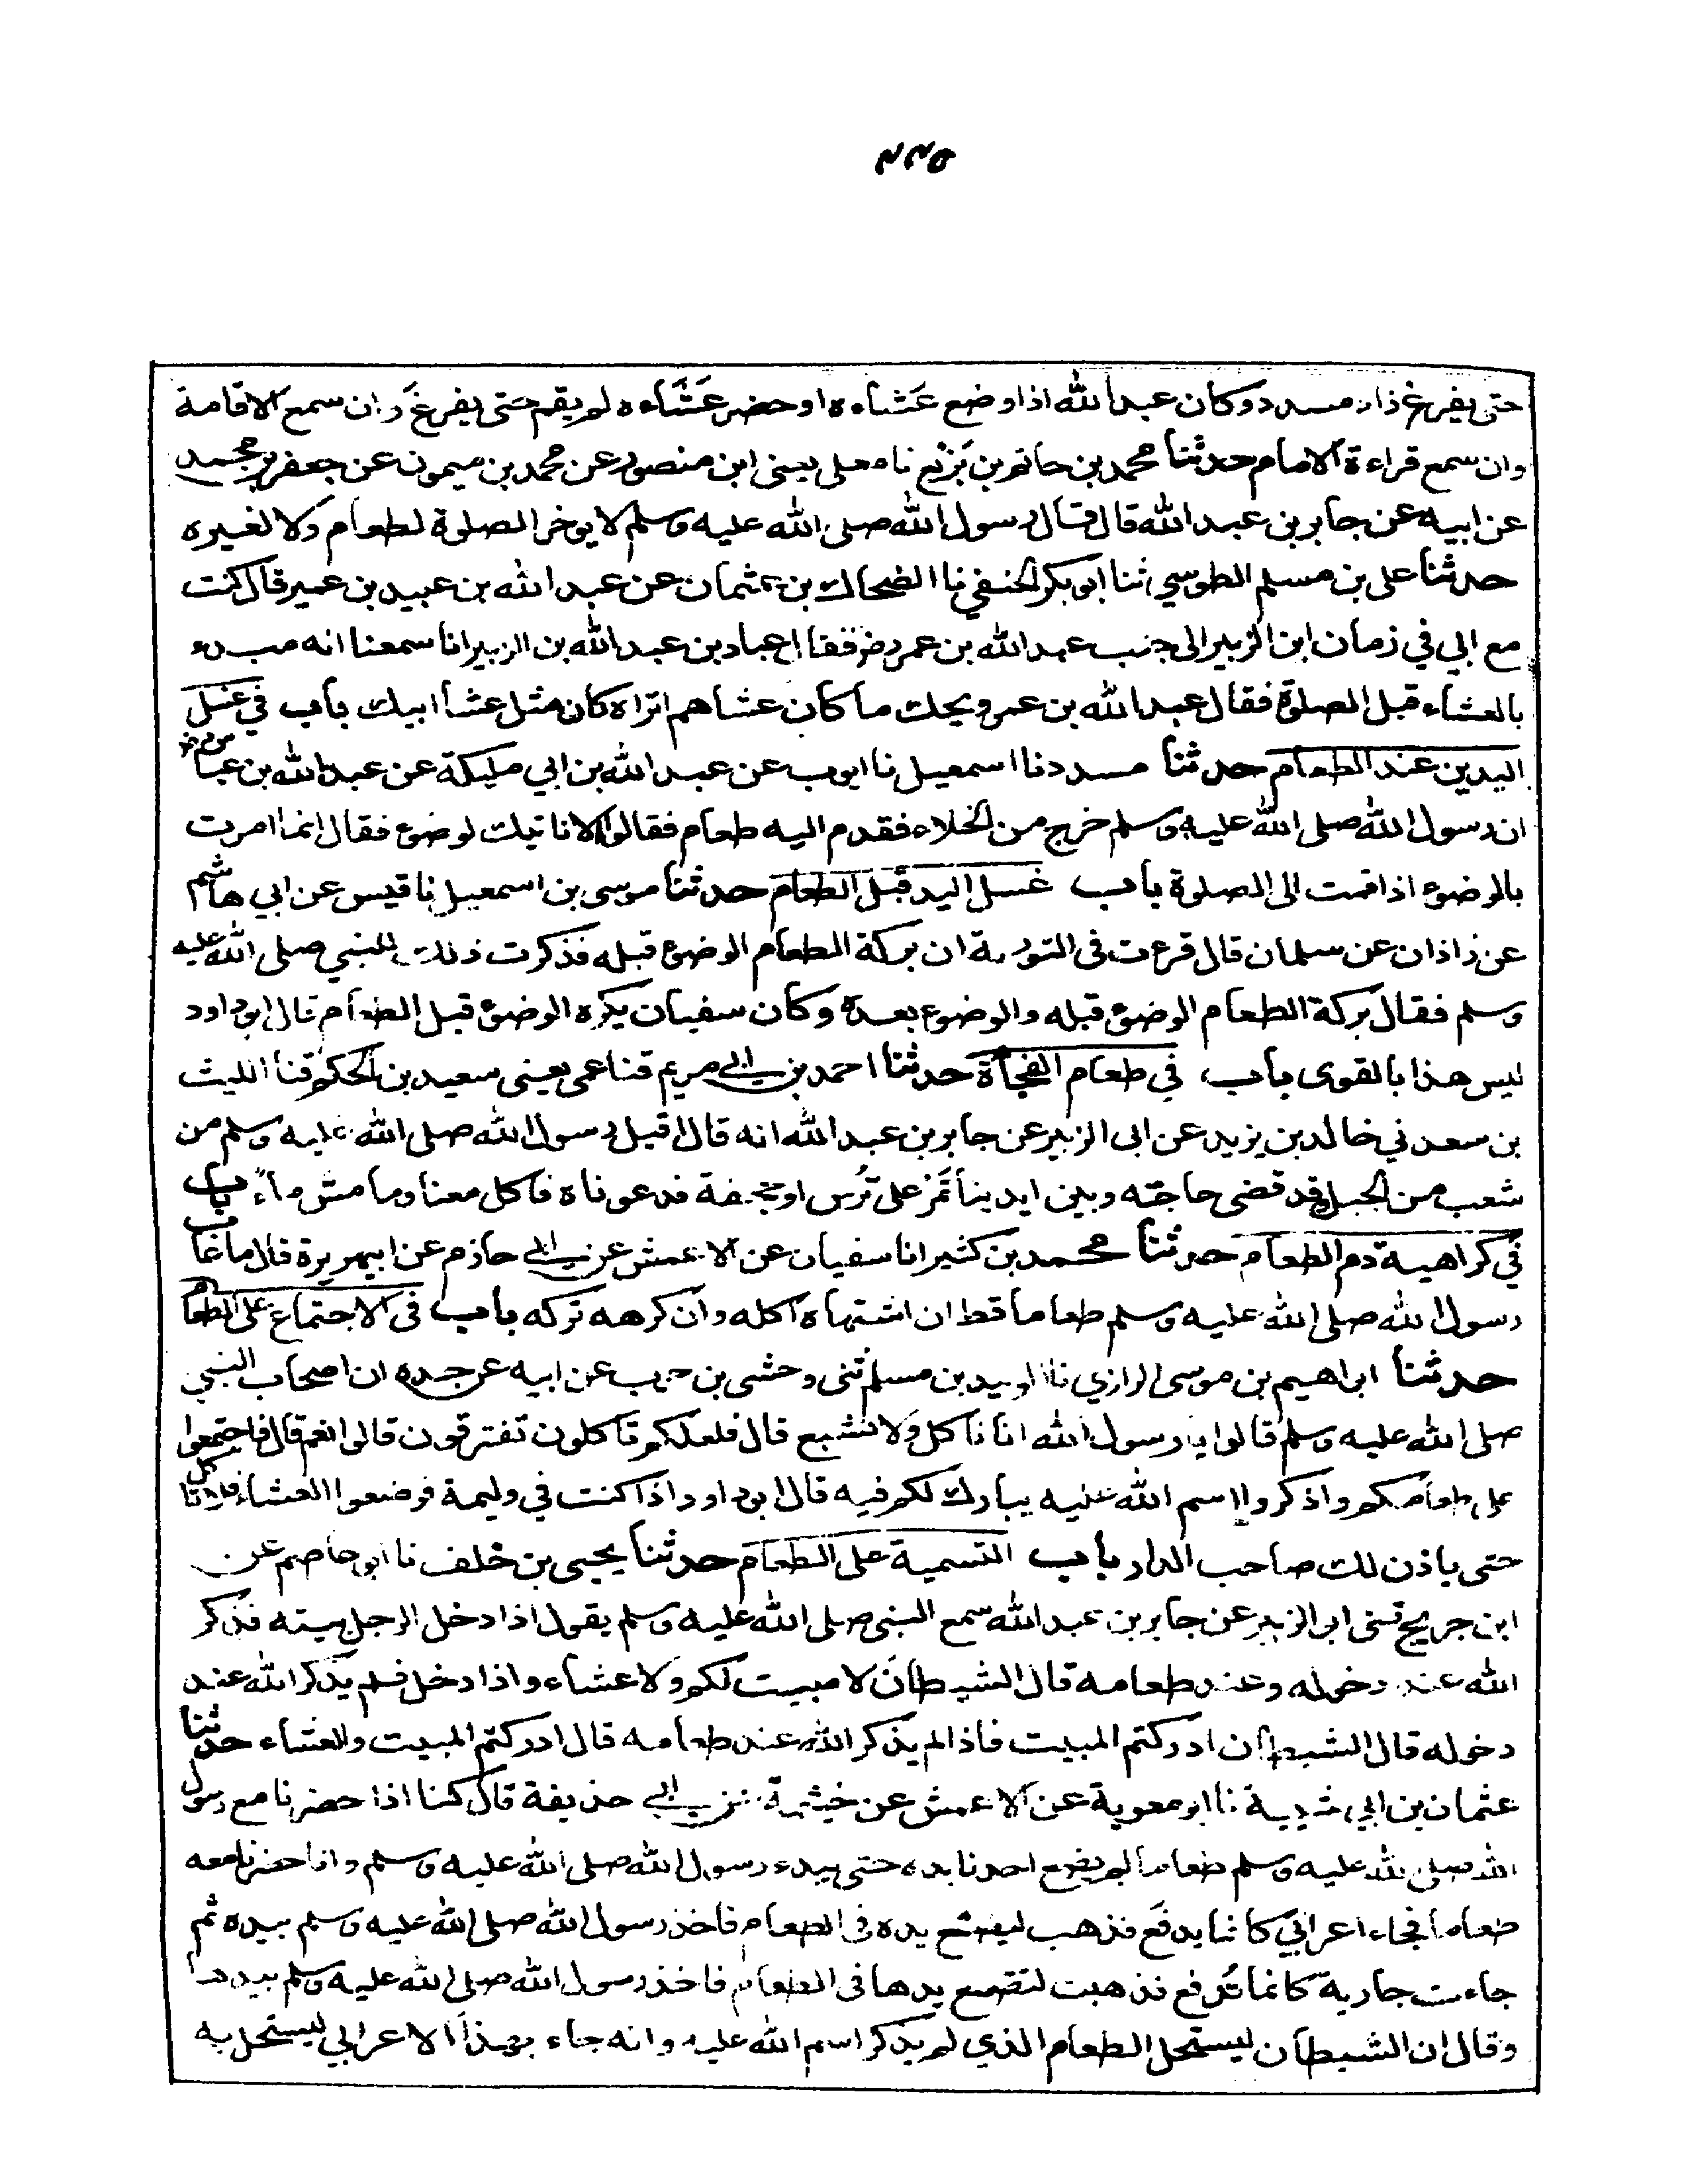 ٢٢٥
حتى يفرغ زاد مسدد وكان عبد الله اذا وضع عَشاءه او حضر عَشَاءه لم يقم حتى يفرغَ وان سمع الاقامة
وان سمع قراءة الامام حدثنا محمد بن حاتم بن بَزيْع نا معلى يعنى ابن منصور عن محمد بن ميمون عن جعفر بن محمد
عن ابيه عن جابر بن عبد الله قال قال رسول الله صلى الله عليه وسلم لا يوخر الصلوة لطعام ولا لغيره
حدثنا على بن مسلم الطوسي ثنا ابو بكر الحنفي نا الضحاك بن عثمان عن عبد الله بن عبيد بن عمير قال كنت
مع ابي في زمان ابن الزبير الى جنب عبد الله بن عمر رض فقال عباد بن عبد الله بن الزبير انا سمعنا انه يبدء
بالعشاء قبل الصلوة فقال عبد الله بن عمر ويحك ما كان عشاهم اتراه كان مثل عشا ابيك باب في غسل
اليدين عند الطعام حدثنا مسدد نا اسمعيل نا ايوب عن عبد الله بن ابي مليكة عن عبد الله بن عباس رض
ان رسول الله صلى الله عليه وسلم خرج من الخلاء فقدم اليه طعام فقالوا الا ناتيك لوضوء فقال انما امرت
بالوضوء اذا قمت الى الصلوة باب غسل اليد قبل الطعام حدثنا موسى بن اسمعيل نا قيس عن ابي هاشم
عن زاذان عن سلمان قال قرءت فى التورية ان بركة الطعام الوضوء قبله فذكرت ذلك للنبي صلى الله عليه
وسلم فقال بركة الطعام الوضوء قبله والوضوء بعده وكان سفيان يكره الوضوء قبل الطعام قال ابو داود
ليس هذا بالقوى باب في طعام الفجأة حدثنا احمد بن ابي مريم قنا عمى يعنى سعيد بن الحكم قنا الليث
بن سعد ني خالد بن يزيد عن ابى الزبير عن جابر بن عبد الله انه قال اقبل رسول الله صلى الله عليه وسلم من
شعب من الجبل وقد قضى حاجته وبين ايدينا تمر على تُرس او حجفة فدعوناه فاكل معنا وما مس ماءً باب
في كراهية ذم الطعام حدثنا محمد بن كثير انا سفيان عن الاعمش عن ابي حازم عن ابيهريرة قال ما عاب
رسول الله صلى الله عليه وسلم طعاما قط ان اشتهاه اكله وان كرهه تركه باب فى الاجتماع على الطعام
حدثنا ابراهيم بن موسى الرازي نا الوليد بن مسلم ثنى وحشى بن حرب عن ابيه عن جده ان اصحاب النبي
صلى الله عليه وسلم قالوا يا رسول الله انا ناكل ولا نشبع قال فلعلكم تاكلون تفترقون قالوا نعم قال فاجتمعوا
على طعامكم واذكروا اسم الله عليه يبارك لكم فيه قال ابو داود اذا كنت في وليمة فوضعوا العشاء فلا تاكل
حتى ياذن لك صاحب الدار باب التسمية على الطعام حدثنا يحيى بن خلف نا ابو عاصم عن
ابن جريج قنى ابو الزبير عن جابر بن عبد الله سمع النبى صلى الله عليه وسلم يقول اذا دخل الرجل بيته فذكر
الله عند دخوله وعند طعامه قال الشيطان لا مبيت لكم ولا عشاء واذا دخل فلم يذكر الله عند
دخوله قال الشيطان ادركتم المبيت فاذا لم يذكر الله عند طعامه قال ادركتم المبيت والعشاء حدثنا
عثمان بن ابي شيبة نا ابو معوية عن الاعمش عن خيثمة عن ابي حذيفة قال كنا اذا حضرنا مع رسول
الله صلى الله عليه وسلم طعاما لم يضع احدنا يده حتى يبدء رسول الله صلى الله عليه وسلم وانا حضرنا معه
طعاما فجاء اعرابي كانما يدفع فذهب ليضع يده فى الطعام فاخذ رسول الله صلى الله عليه وسلم بيده ثم
جاءت جارية كانما تُدفع فذهبت لتضع يدها فى الطعام فاخذ رسول الله صلى الله عليه وسلم بيدها
وقال ان الشيطان ليستحل الطعام الذي لم يذكر اسم الله عليه وانه جاء بهذا الاعرابي ليستحل به